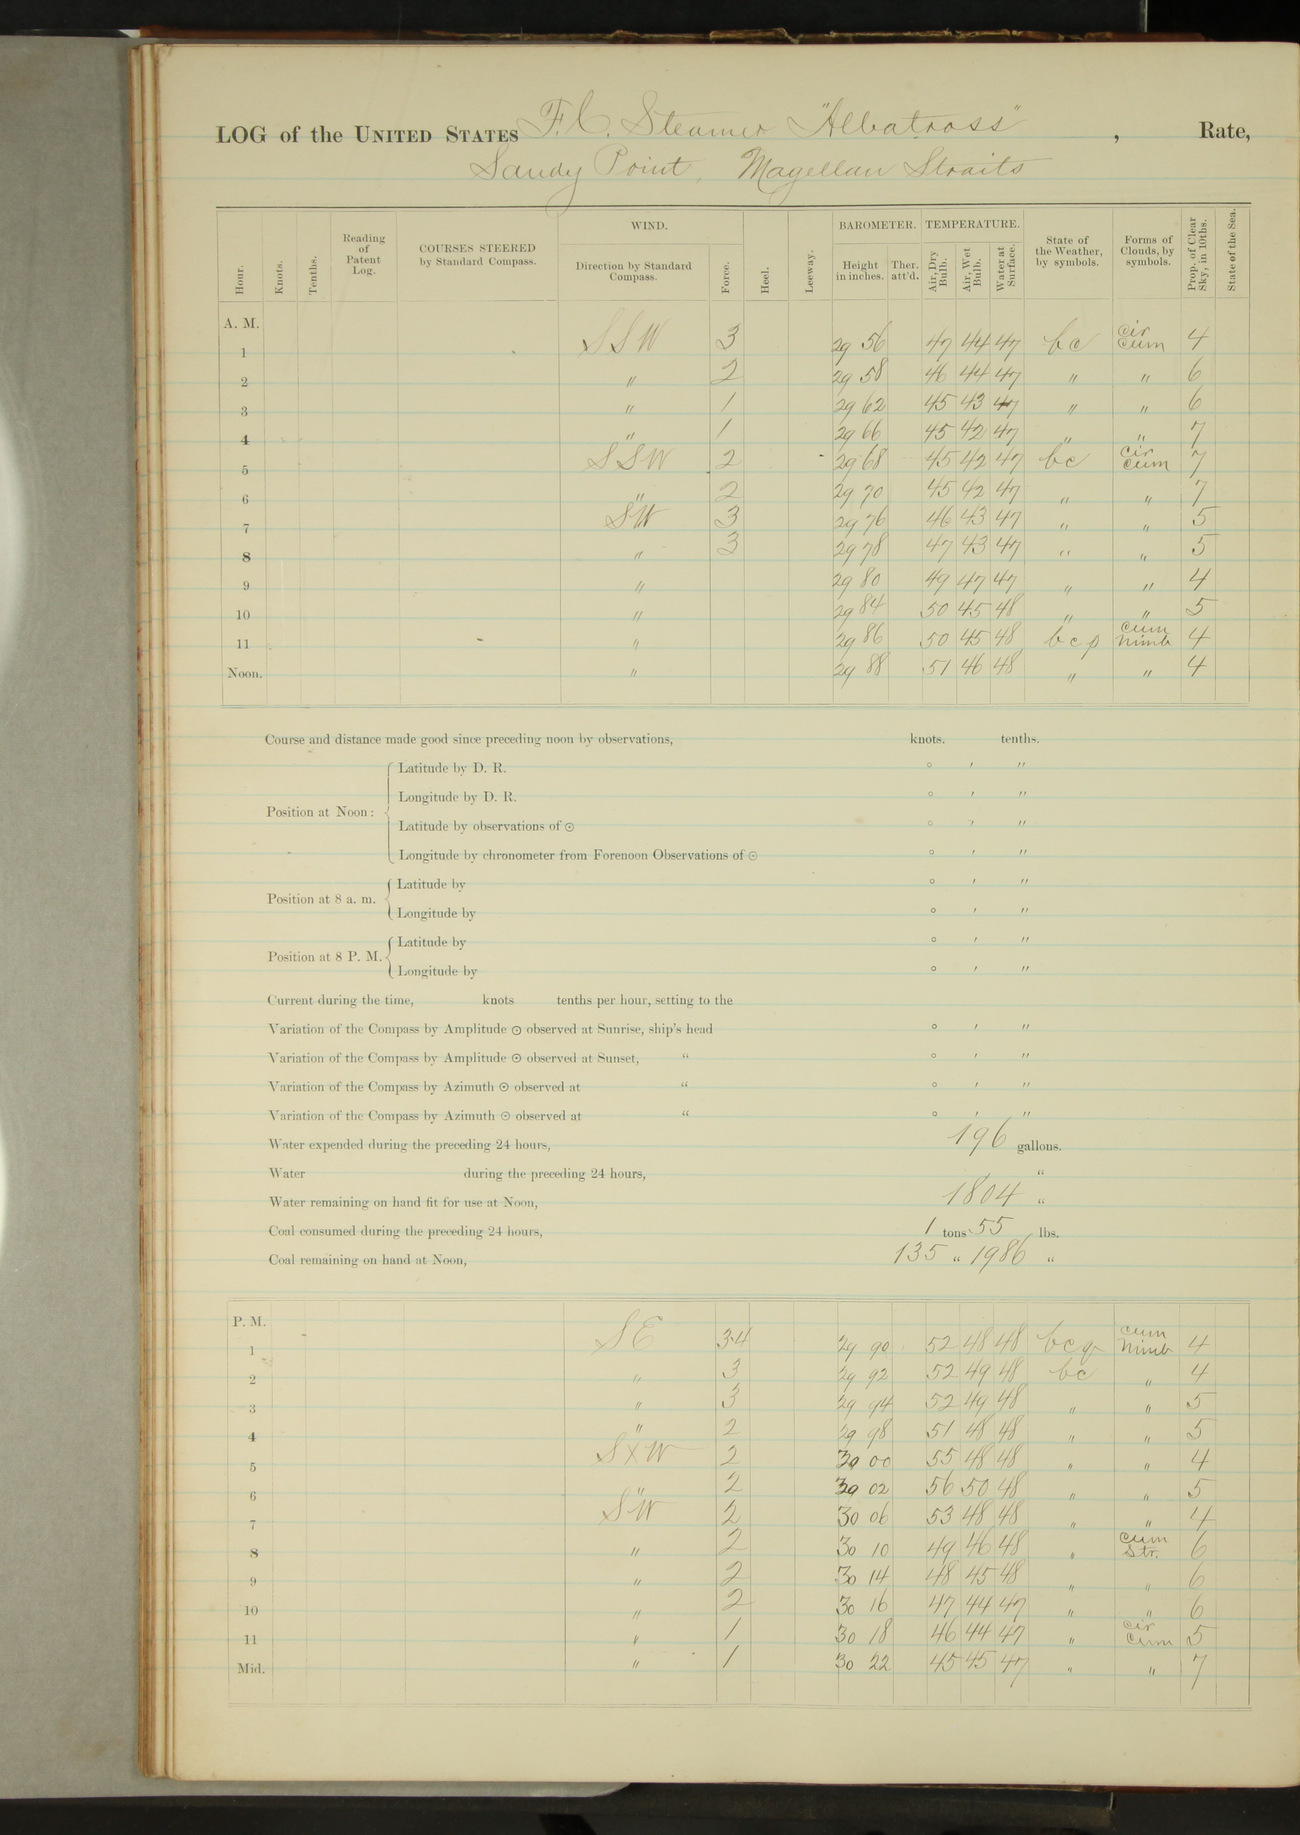 LOG of the UNITED STATES F.C. Steamer "Albatross", Rate,
Sandy Point, Magellan Straits
Hour. Knots. Tenths. Reading of Patent Log. COURSES STEERED by Standard Compass. WIND. Direction by Standard Compass. Force. Heel. Leeway. BAROMETER. Height in inches. Ther. att'd. TEMPERATURE. Air, Dry Bulb. Air, Wet Bulb. Water at Surface. State of the Weather, by symbols. Forms of Clouds, by symbols. Prop. of Clear Sky, in 10ths. State of the Sea.
A. M.
1 SSW 3 29 56 47 44 47 bc cir cum 4
2 " 2 29 58 46 44 47 " " 6
3 " 1 29 62 45 43 47 " " 6
4 " 1 29 66 45 42 47 " " 7
5 SSW 2 29 68 45 42 47 bc cir cum 7
6 " 2 29 70 45 42 47 " " 7
7 SW 3 29 76 46 43 47 " " 5
8 " 3 29 78 47 43 47 " " 5
9 " 29 80 49 47 47 " " 4
10 " 29 84 50 45 48 " " 5
11 " 29 86 50 45 48 bcp cum Nimb 4
Noon. " 29 88 51 46 48 " " 4
Course and distance made good since preceding noon by observations, knots. tenths.
Position at Noon:
Latitude by D. R. ° ′ ″
Longitude by D. R. ° ′ ″
Latitude by observations of ⊙ ° ′ ″
Longitude by chronometer from Forenoon Observations of ⊙ ° ′ ″
Position at 8 a. m.
Latitude by ° ′ ″
Longitude by ° ′ ″
Position at 8 P. M.
Latitude by ° ′ ″
Longitude by ° ′ ″
Current during the time, knots tenths per hour, setting to the
Variation of the Compass by Amplitude ⊙ observed at Sunrise, ship's head ° ′ ″
Variation of the Compass by Amplitude ⊙ observed at Sunset, " ° ′ ″
Variation of the Compass by Azimuth ⊙ observed at " ° ′ ″
Variation of the Compass by Azimuth ⊙ observed at " ° ′ ″
Water expended during the preceding 24 hours, 196 gallons.
Water during the preceding 24 hours, "
Water remaining on hand fit for use at Noon, 1804 "
Coal consumed during the preceding 24 hours, 1 tons 55 lbs.
Coal remaining on hand at Noon, 135 " 1986 "
P. M.
1 SE 3-4 29 90 52 48 48 bcq cum Nimb 4
2 " 3 29 92 52 49 48 bc " 4
3 " 3 29 94 52 49 48 " " 5
4 " " 2 29 98 51 48 48 " " 5
5 SXW 2 30 00 55 48 48 " " 4
6 " 2 30 02 56 50 48 " " 5
7 SW 2 30 06 53 48 48 " " 4
8 " 2 30 10 49 46 48 " cum Str. 6
9 " 2 30 14 48 45 48 " " 6
10 " 2 30 16 47 44 47 " " 6
11 " 1 30 18 46 44 47 " cir Cum 5
Mid. " 1 30 22 45 45 47 " " 7